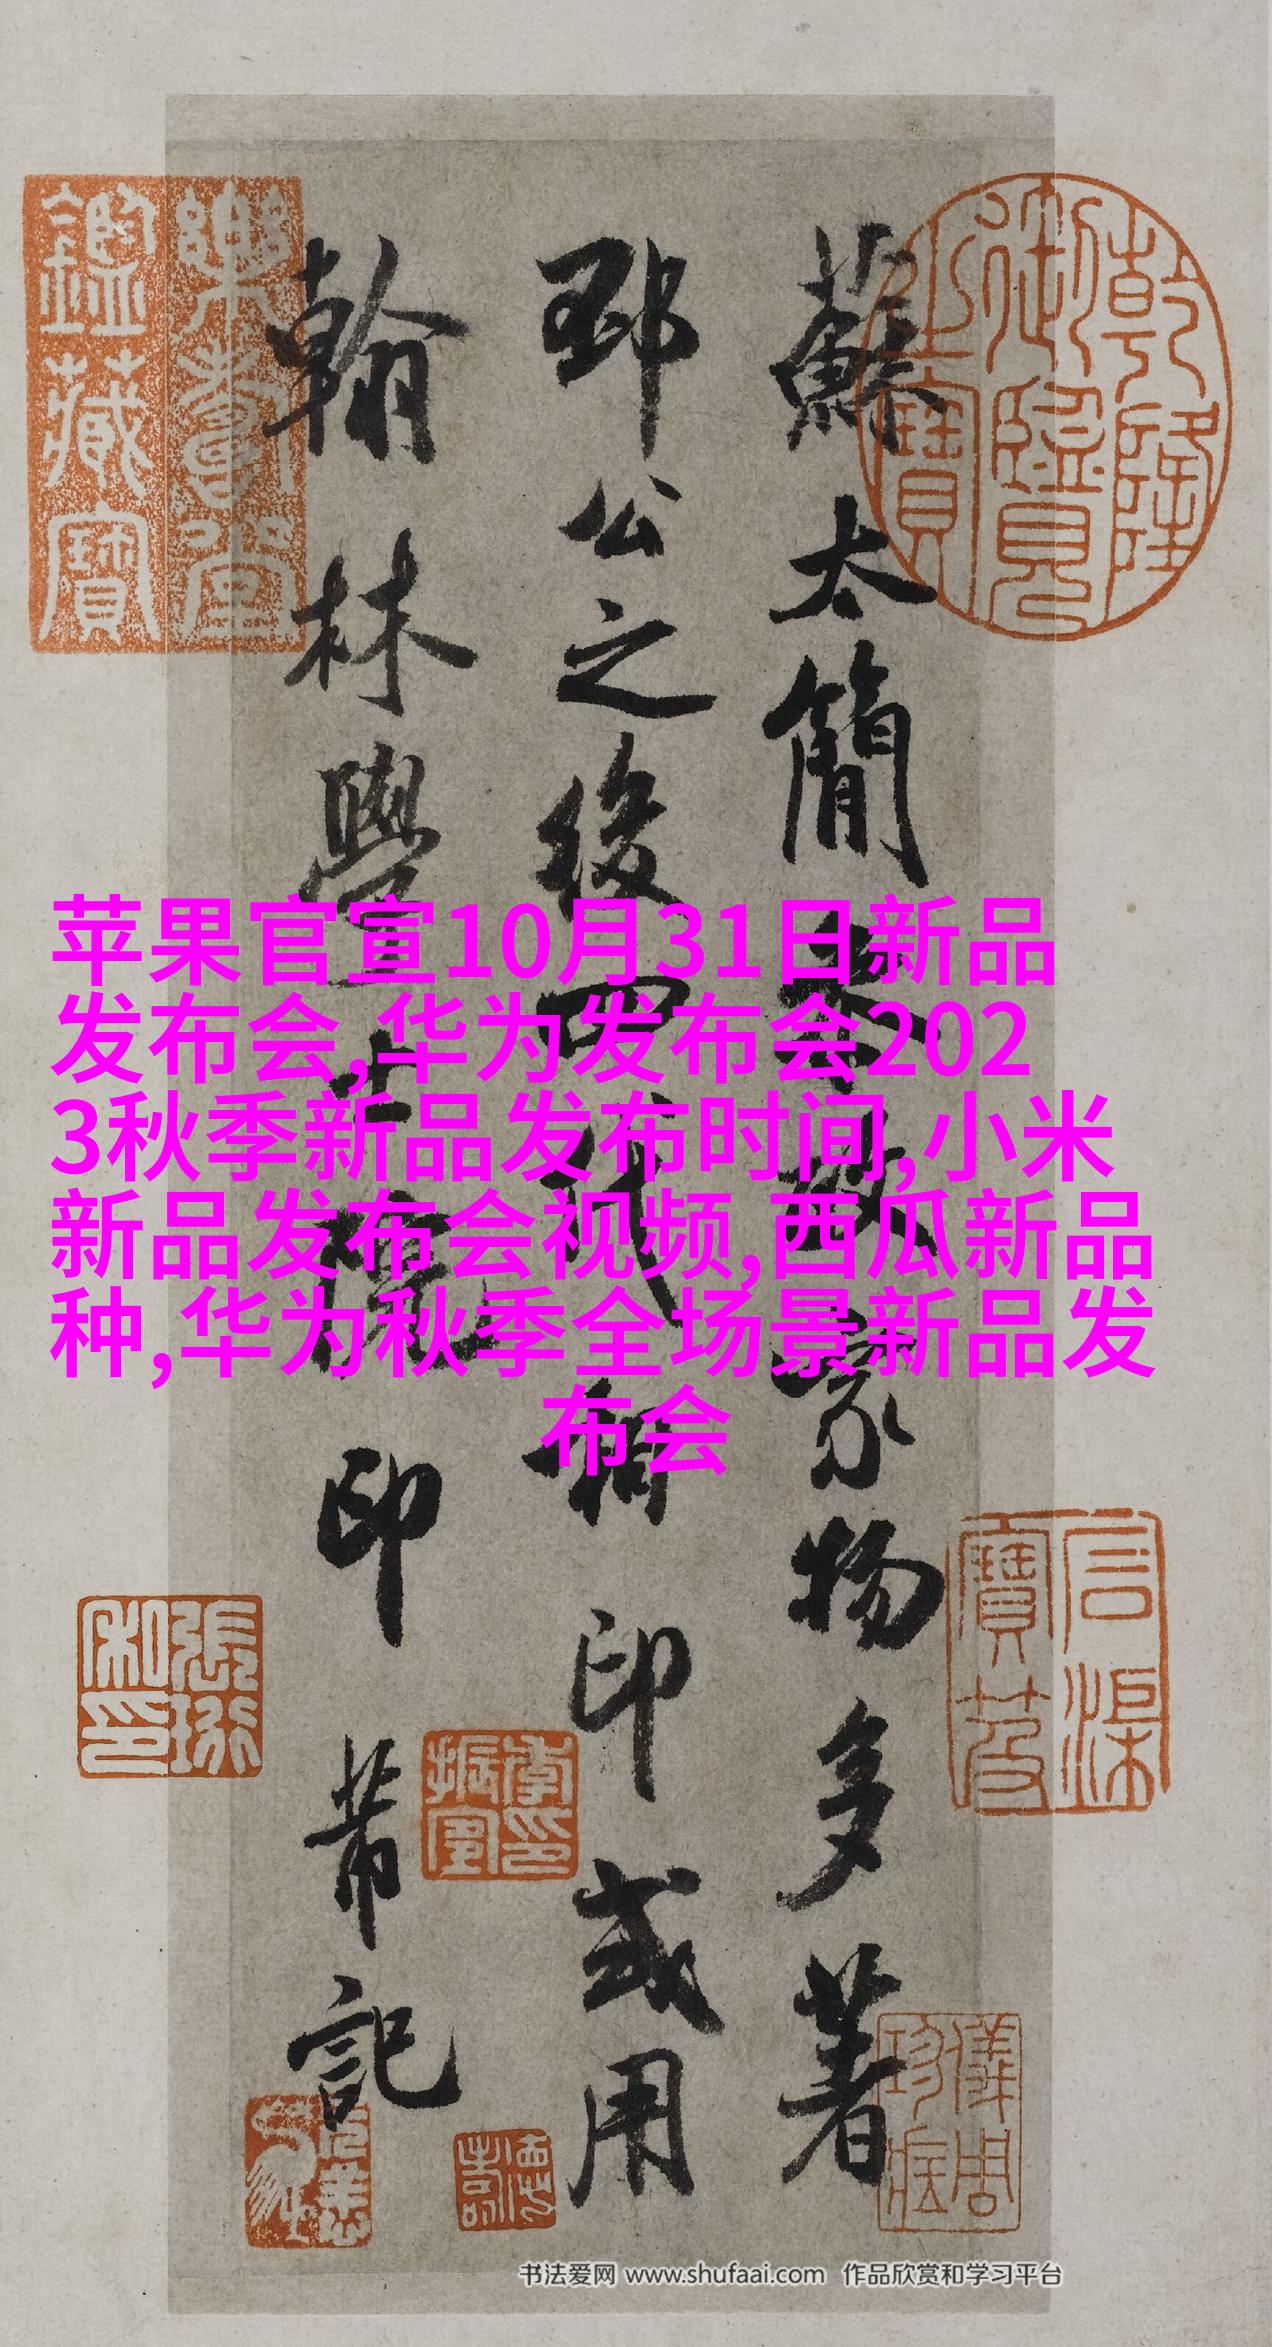 蘇太簡
家物多著
邳公之後四代相印或用
翰林學士院印芾記
苹果官宣10月31日新品
发布会,华为发布会202
3秋季新品发布时间,小米
新品发布会视频,西瓜新品
种,华为秋季全场景新品发
布会
乾隆御覽之寶
樂壽堂鑑藏寶
儀周珍藏
書法爱网 www.shufaai.com 作品欣赏和学习平台